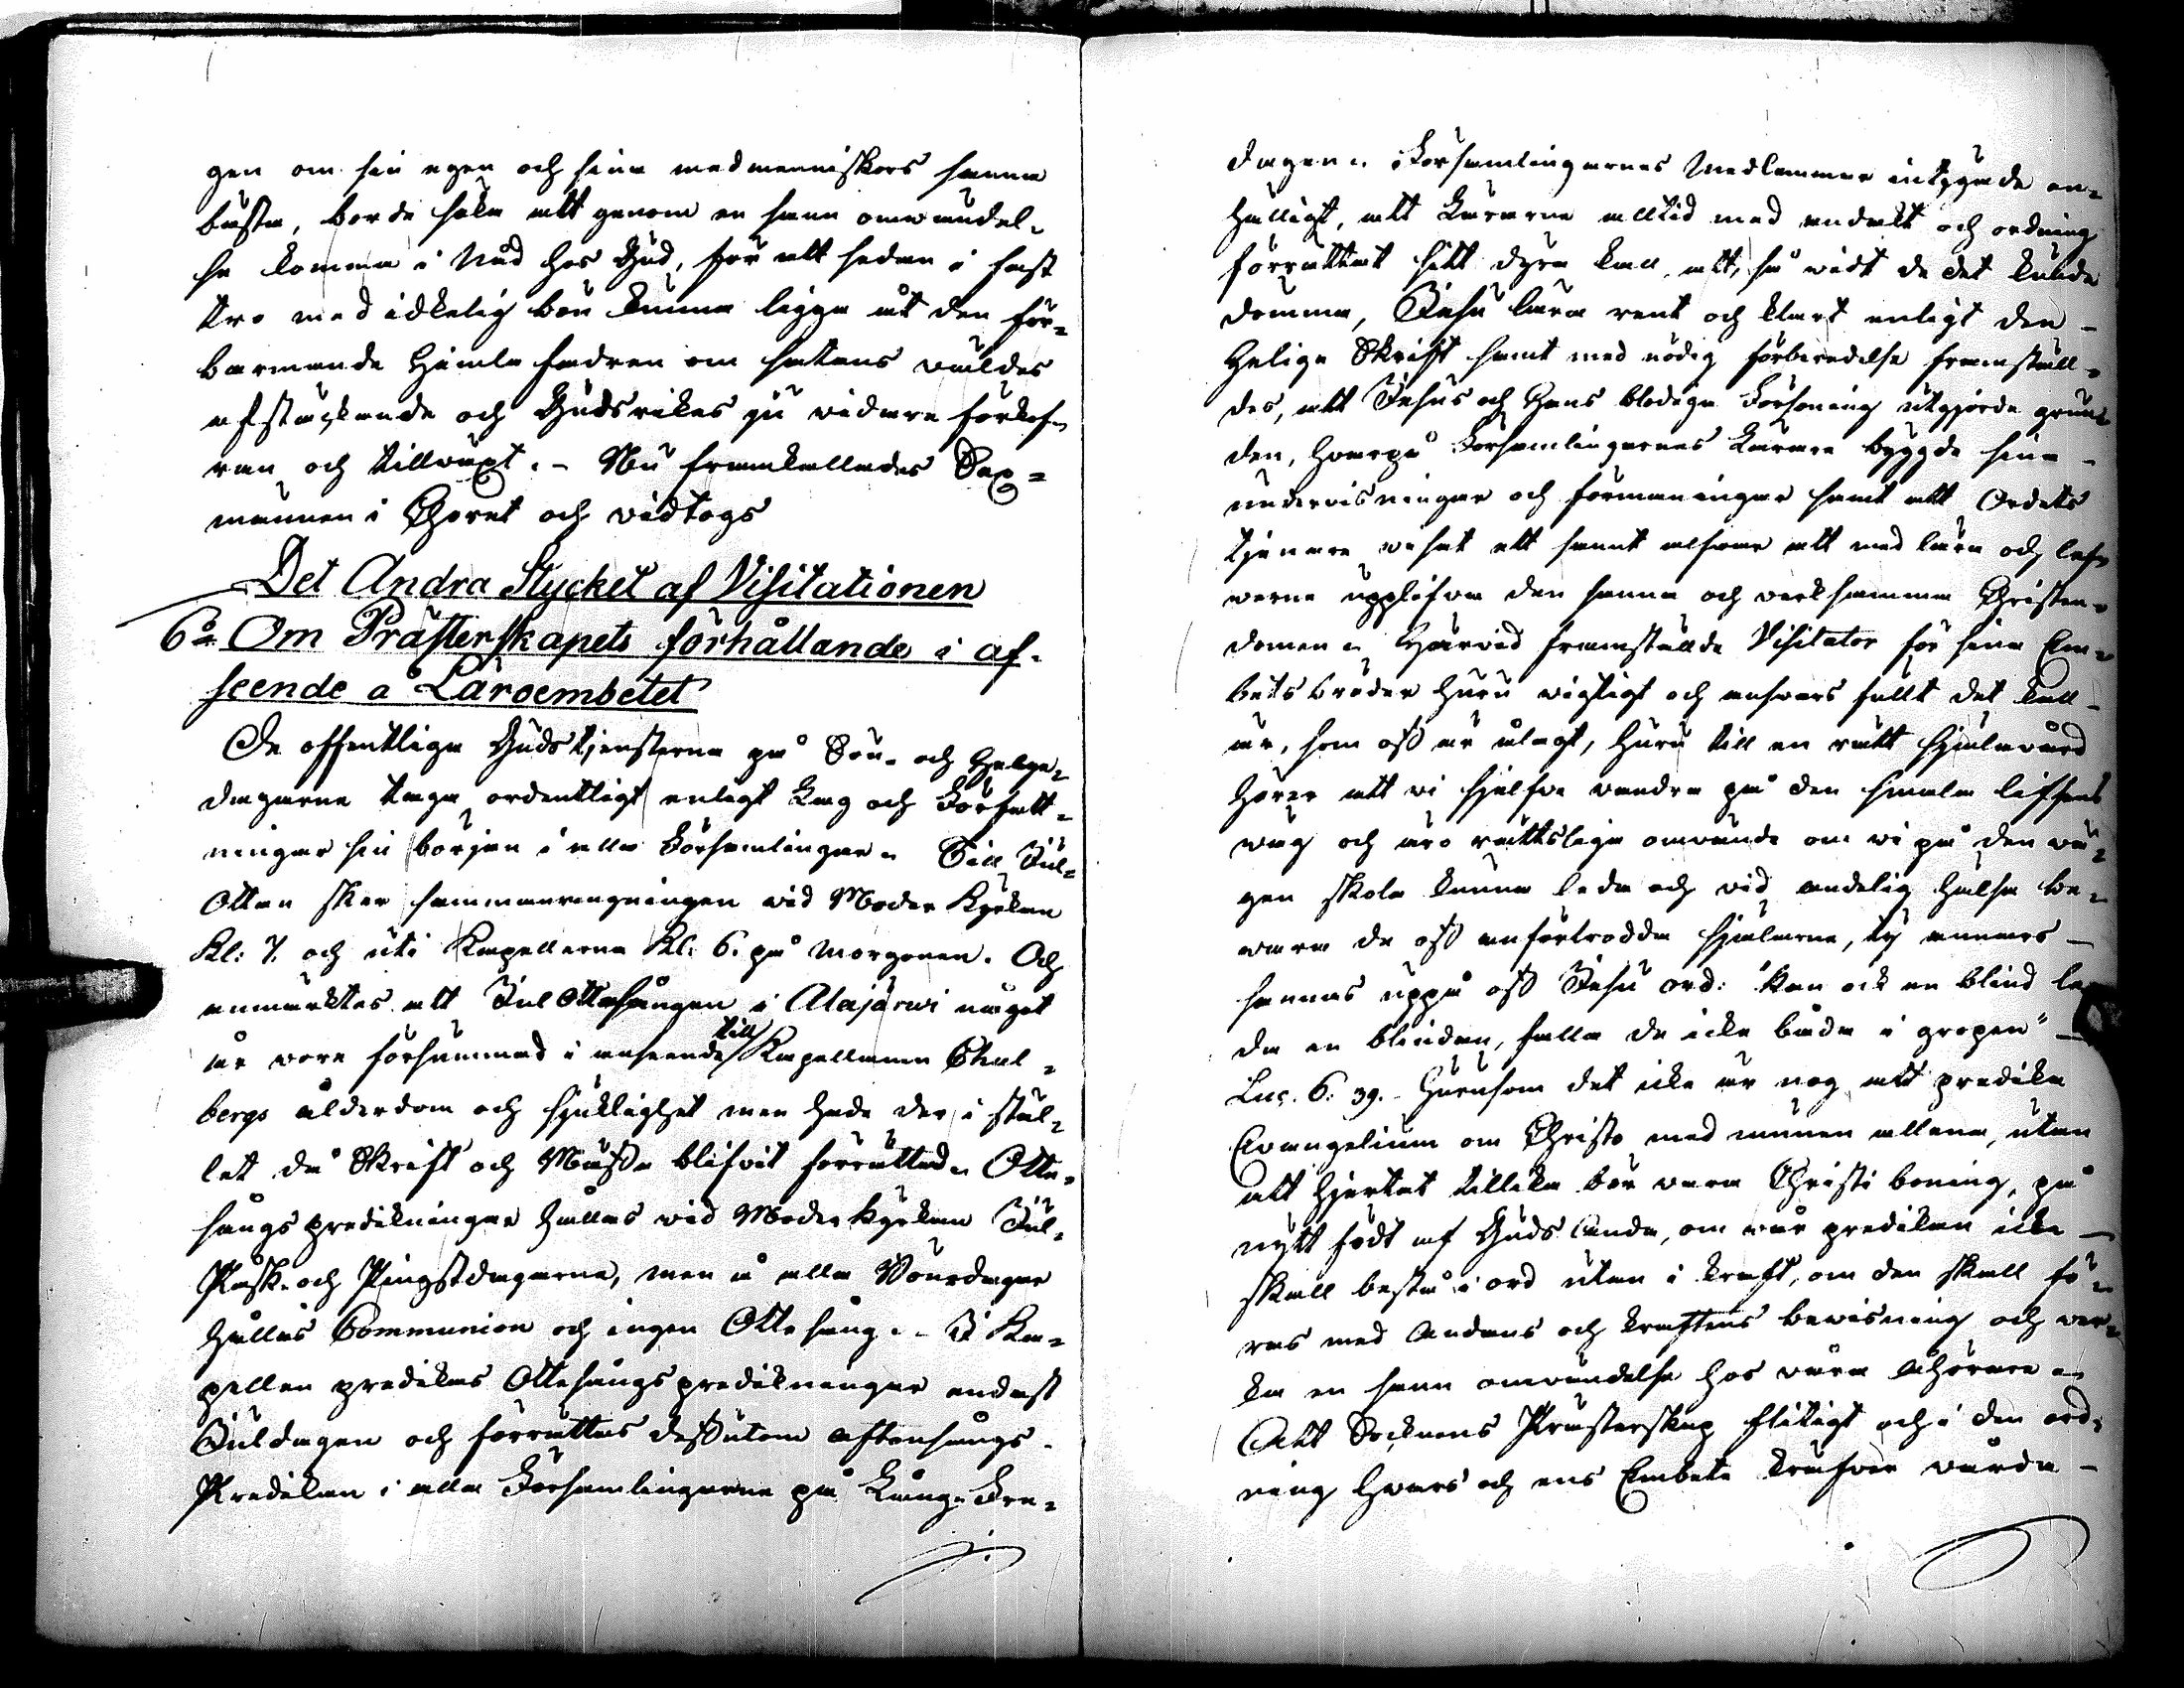 gen om sin egen och sina medmenniskors sanna
bästa, borde söka att genom en sann omvändel-
se komma i Nåd hos Gud, för att sedan i fast
tro med idkelig bön kunna ligga åt den för-
barmande Himla fadren om satans väldes
afstäckande och Guds rikes ju vidare förkof-
ran och tillväxt. - Nu framkallades Sex-
männen i Choret och vidtogs
Det Andra Stycket af Visitationen
6o Om Prästerskapets förhållande i af-
seende å Läroembetet
De offentliga Gudstjensterna på Sön- och Helge-
dagarna taga ordentligt enligt Lag och Författ-
ningar sin början i alla Församlingar. Till Jul-
Ottan sker sammanringningen vid Moder Kyrkan
Kl: 7. och uti Kapellerna Kl. 6. på morgonen. Och
anmärktes att Jul Ottesången i Alajärwi något
år vore försummad i anseende till Kapellanen Stal-
bergs ålderdom och sjuklighet men hade der i stäl-
let då Skrift och Mässa blifvit förrättad. Otte-
sångs predikningar hållas vid Moder Kyrkan Jul-
Påsk- och Pingstdagarna, men å alla Sönedagar
hålles Communion och ingen Ottesång. - I Ka-
pellen predikas Ottesångs predikningar endast
Juldagen och förrättas dessutom aftonsångs-
Predikan i alla Församlingarna på Långfre-
dagen. Församlingarnes Medlemmar intygade en-
hälligt, att Lärarne alltid med andakt och ordning
förrättat sitt dyra kall, att, så vidt de det kunde
dömma, Jesu lära rent och klart enligt den
Helige Skrift samt med nödig förberedelse framställ-
des, att Jesus och Hans blodiga Försoning utgjorde grun-
den, hvarpå Församlingarnes Lärare byggde sina
undervisningar och förmaningar samt att Ordets
tjenare visat ett sannt alfvar att med lära och lef-
verne upplifva den sanna och verksamma Christen-
domen. Härvid framstälde Visitator för sina Em-
bets bröder huru vigtigt och ansvars fullt det kall
är, som oss är ålagt, huru till en rätt Själavård
hörer att vi sjelfve vandra på den smala lifsens
väg och äro rättsliga omvände om vi på den vä-
gen skola kunna leda och vid andelig hälsa be-
vara de oss anförtrodda själarna, ty annars
sannas uppå oss Jesu ord: "Kan ock en blind le-
da en blindan, falla de icke båda i gropen"
Luc. 6: 39. - Hurusom det icke är nog att predika
Evangelium om Christo med munnen allena, utan
att hjertat tillika bör vara Christi boning, på
nytt födt af Guds Anda, om vår predikan icke
skall bestå i ord utan i kraft, om den skall fö-
ras med Andans och kraftens bevisning och ver-
ka en sann omvändelse hos våra åhörare -
Att Socknens Prästerskap flitigt och i den ord-
ning hvars och ens Embete kräfver vårda